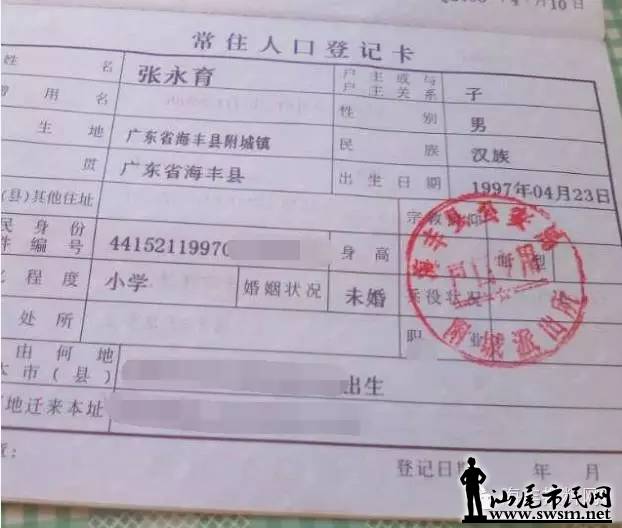 常住人口登记卡
姓 名 张永育 户主或与户主关系 子
用 名 性 别 男
生 地 广东省海丰县附城镇 民 族 汉族
贯 广东省海丰县 出 生 日 期 1997年04月23日
(县)其他住址 宗教信仰
民身份
件编号 4415211997 身 高 型
程 度 小学 婚姻状况 未婚 兵役状况
处 所 职 业
由 何 地
本 市 (县) 出生
地迁来本址
登记日期 年 月
汕尾市民网
www.swsm.net